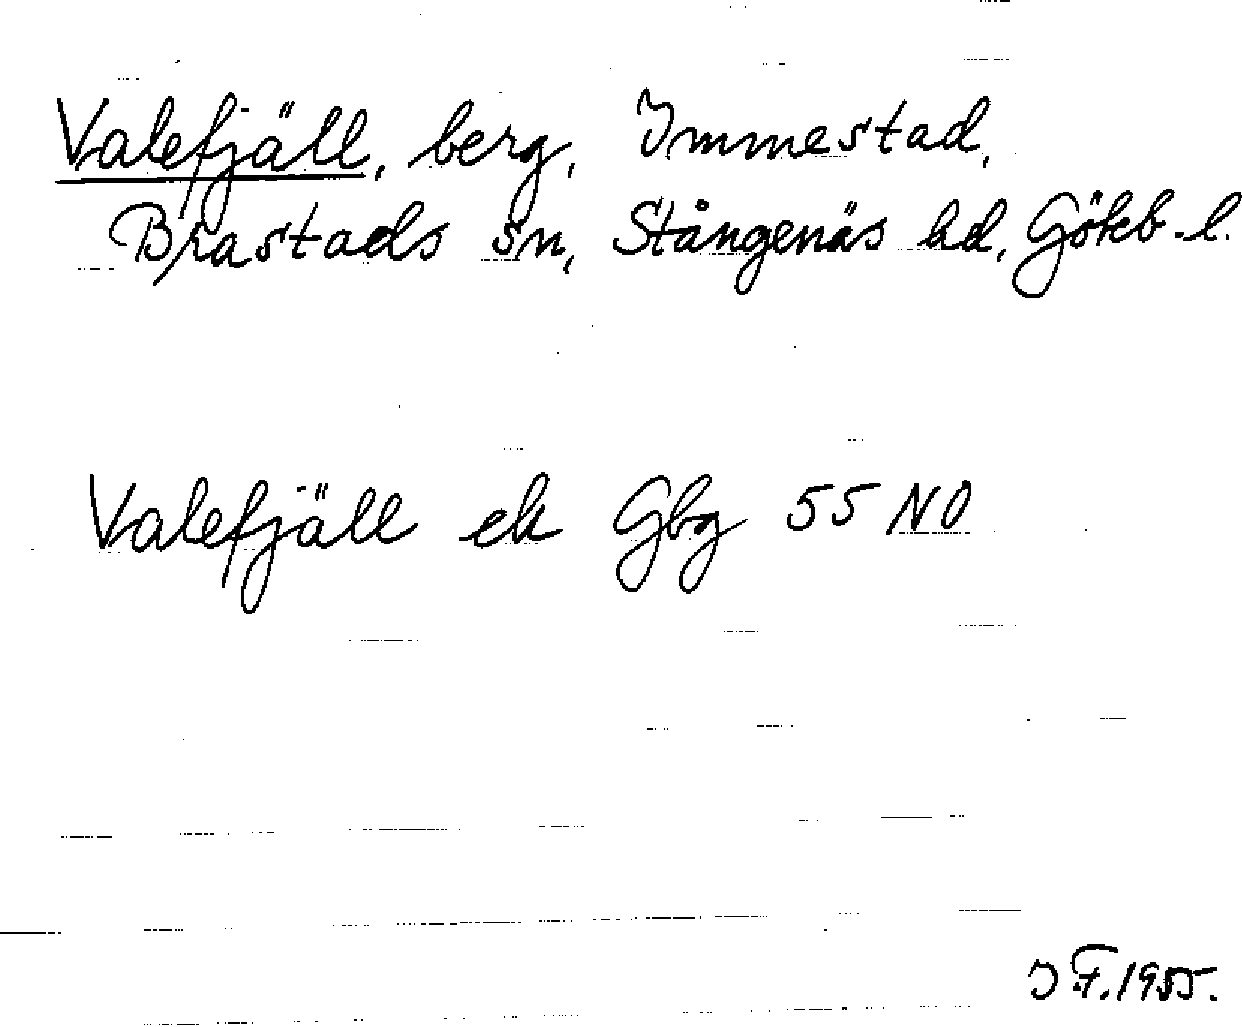 Valefjäll, berg, Immestad,
Brastads sn, Stångenäs hd, Göteb.l.
Valefjäll ek Gbg 55 NO
I F. 1955.